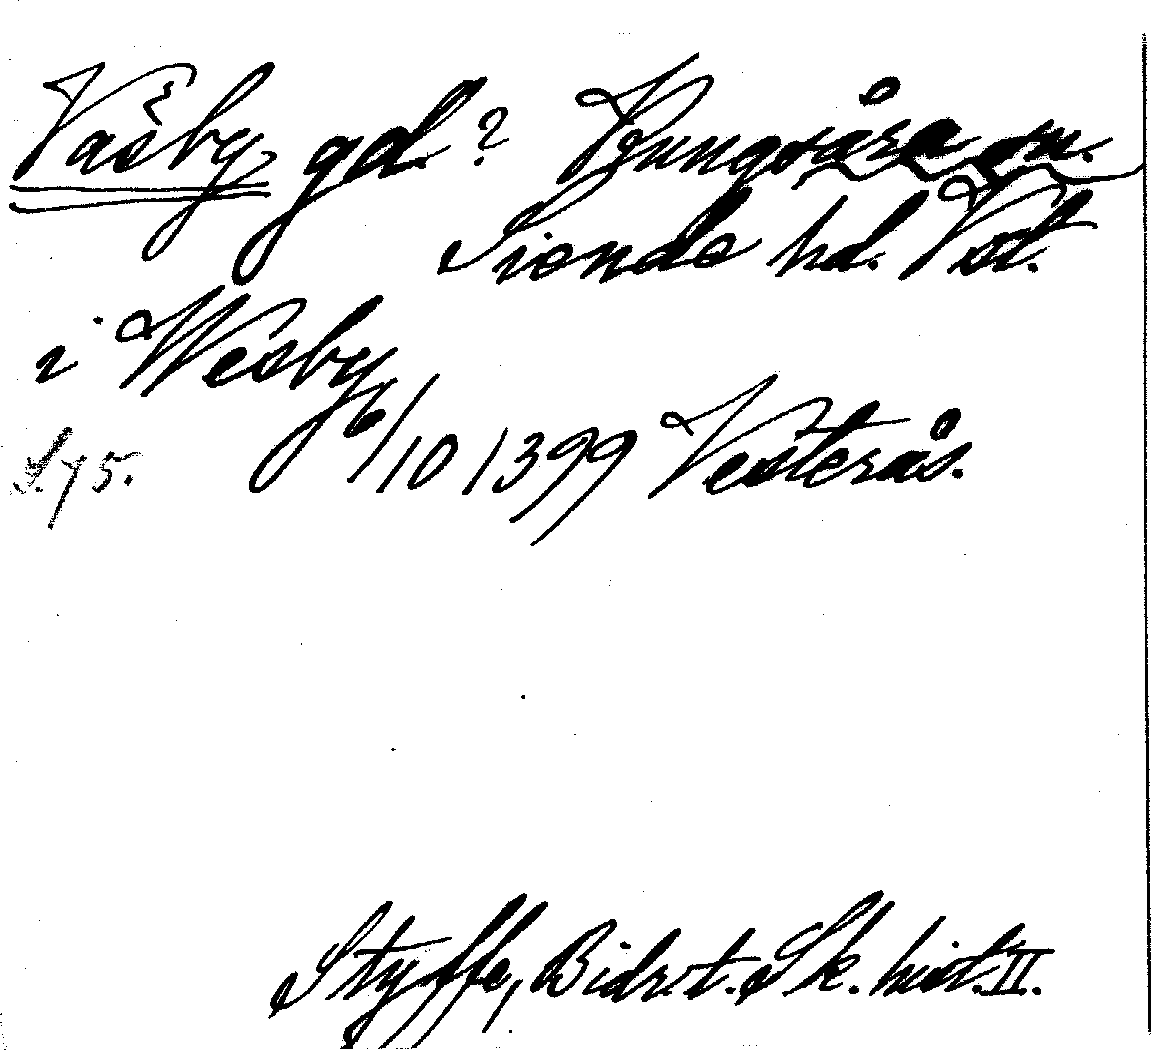 Väsby gd? Kungsåra sn.
Siende hd. Vst.
i Wesby
6/10 1399 Vesterås.
S. 75.
Styffe, Bidr. t. Sk. hist. II.